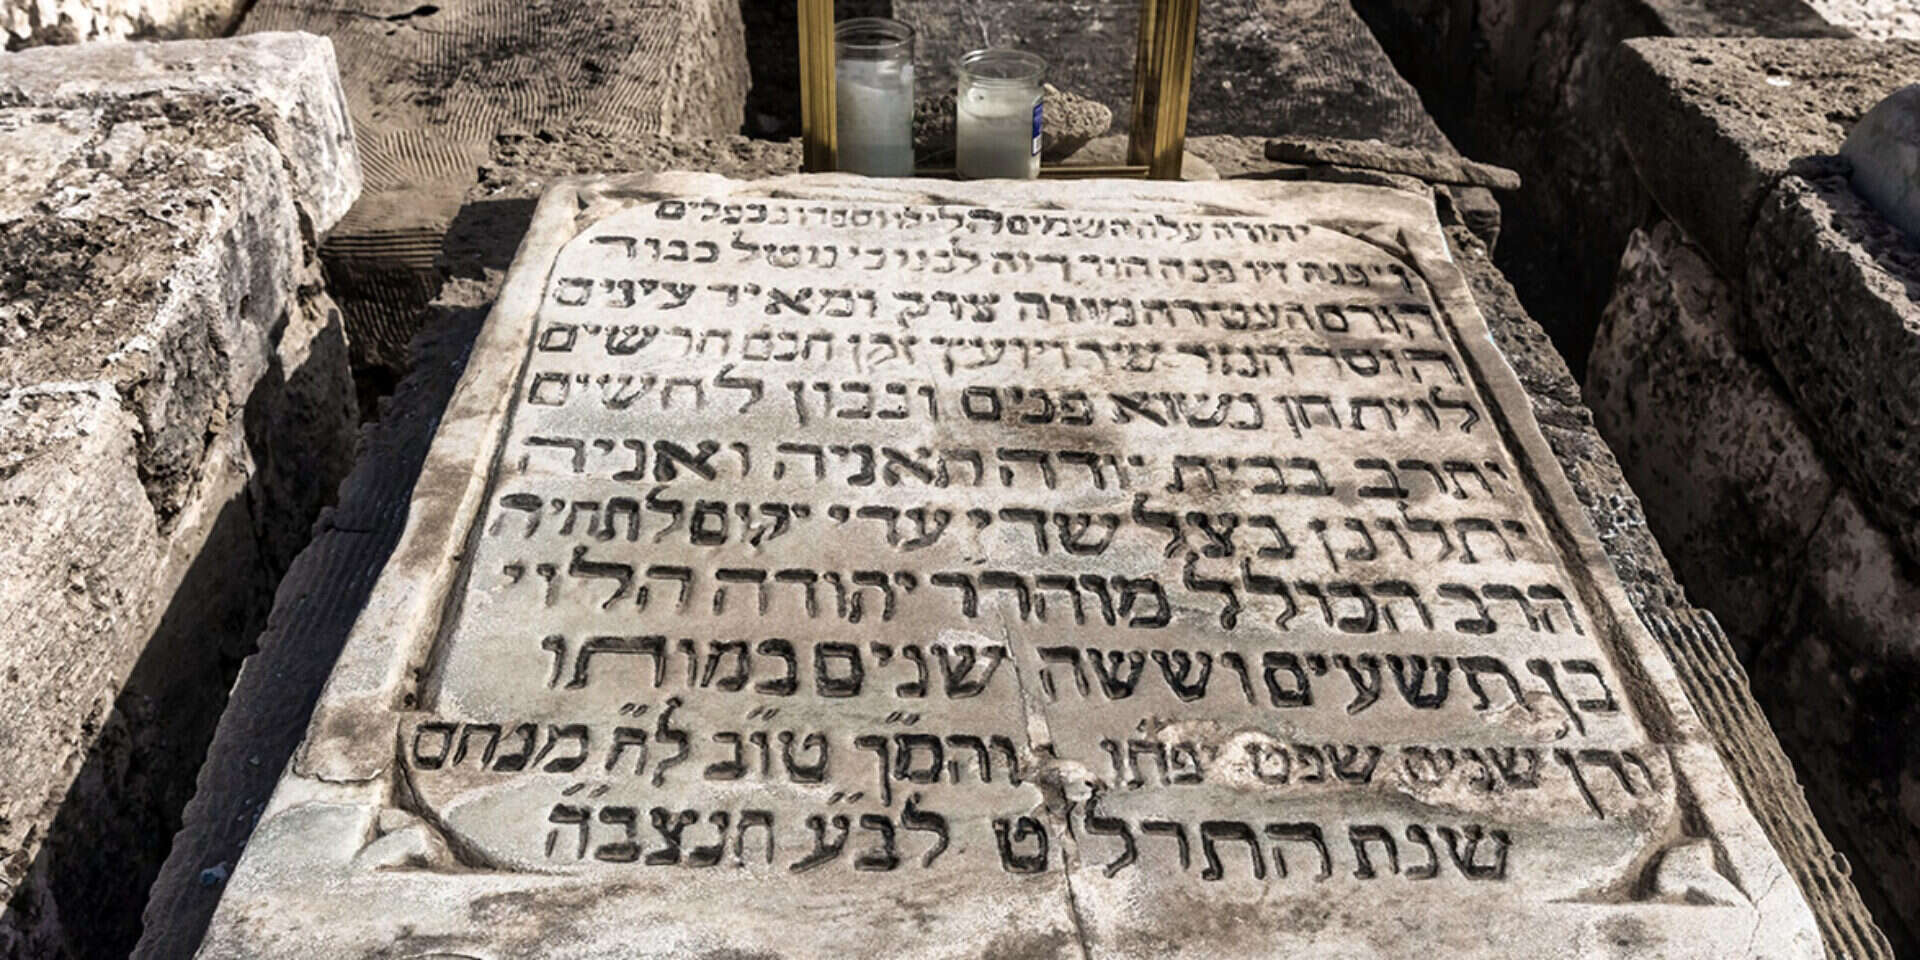 יהודה עלה השמים הלילו וספרו בכפלים
ויפנה זיו פנה הוד הן זה לבנו כי נוטל כבוד
הורם העטרה המורה צדק ומאיר עינים
הוסר הנזר שיר ויועץ זקן חכם חרשים
לוית חן נשוא פנים ונבון לחשים
יתרב בבית יודה תאניה ואניה
יתלונן בצל שדי עדי יקום לתחיה
הרב הכולל מוהרר יהודה הלוי
בן תשעים וששה שנים במותו
ודן שנים שפט יפתו והמ״ך טו״ב לח״ מנחם
שנת התרל ט לב״ע תנצב״ה